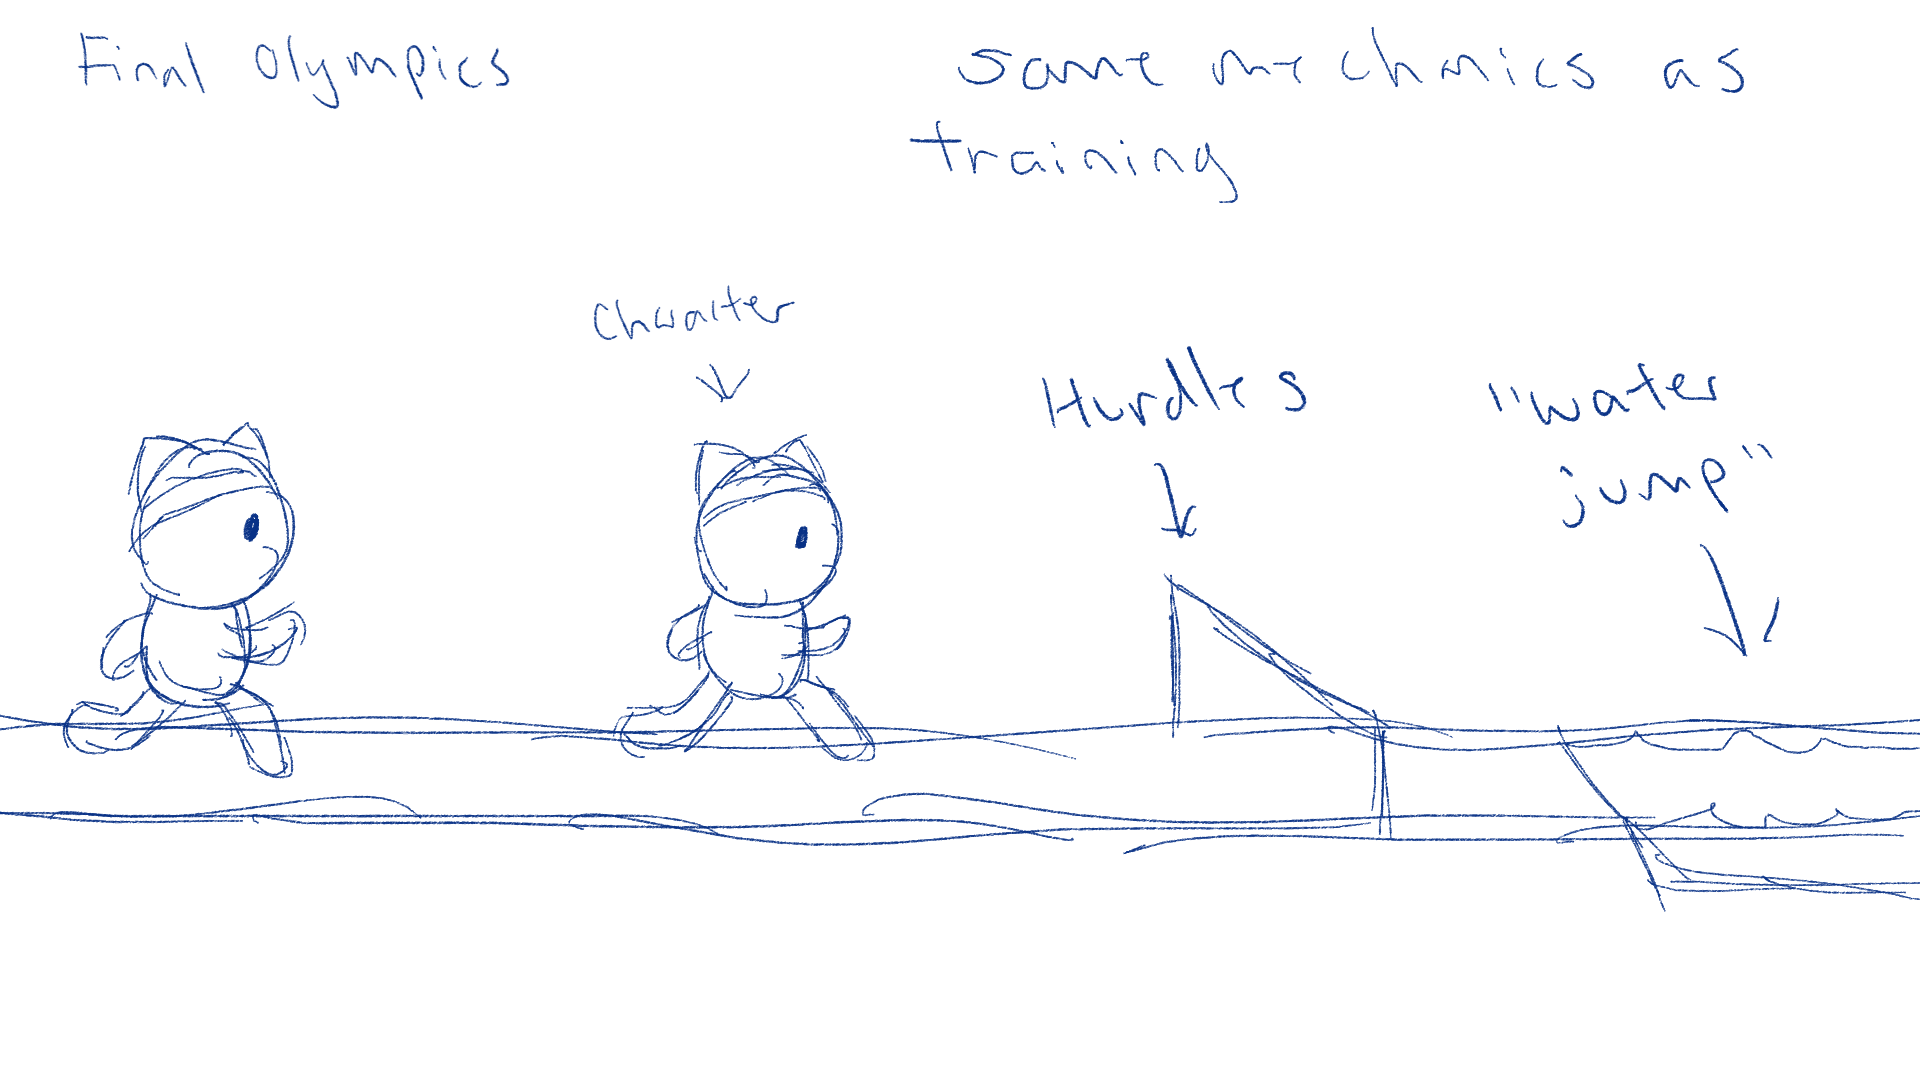 Final Olympics
Same mechanics as
training
Character
Hurdles
"water
jump"